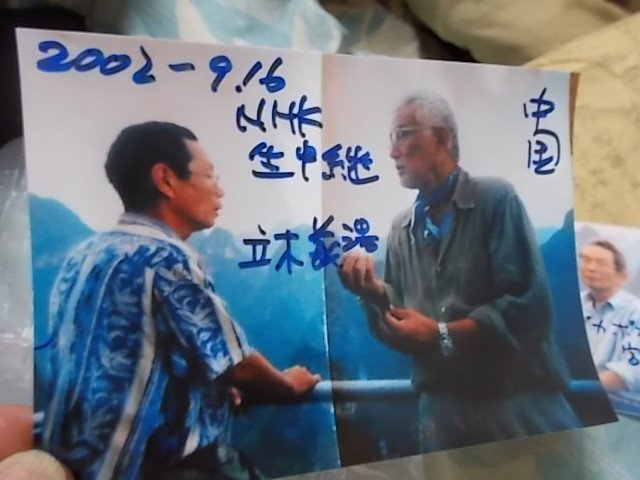 2002-9.16
NHK
生中継
立木義浩
中国